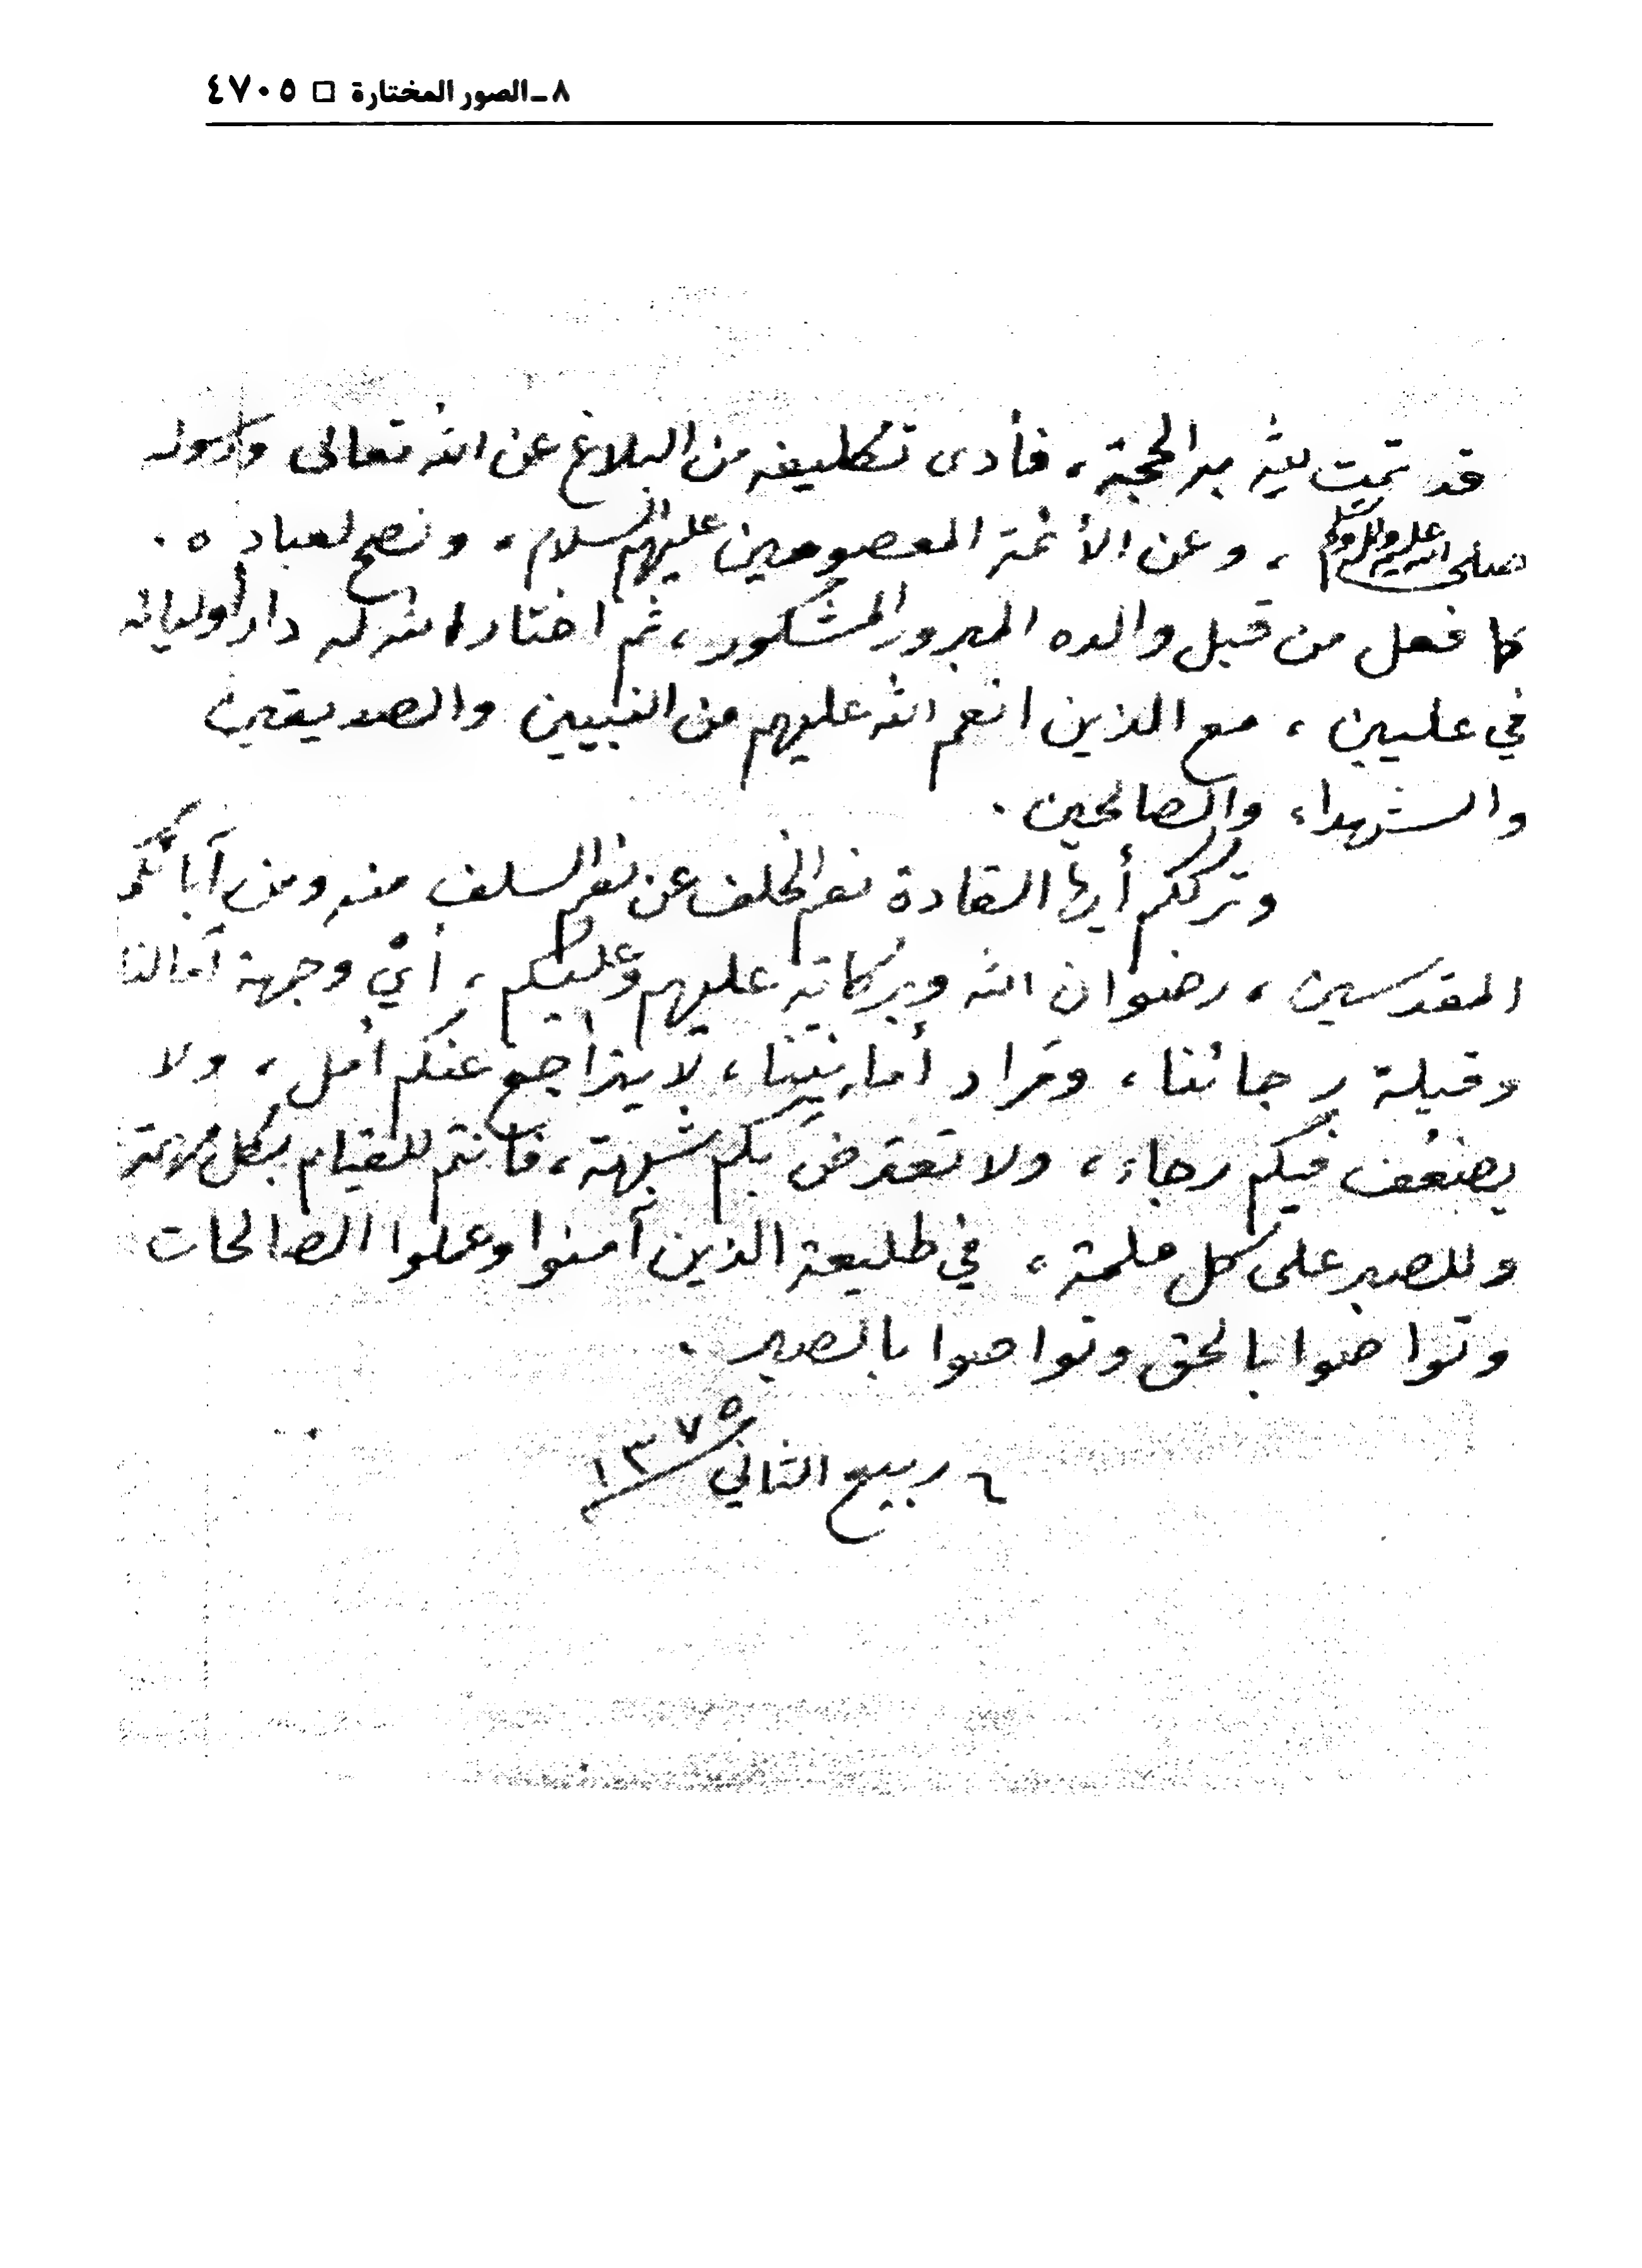 ٨ ـ الصور المختارة □ ٤٧٠٥
قد تمت لله به الحجة، فأدى تكليفه من البلاغ عن الله تعالى ورسوله
صلى الله عليه وآله وسلم، وعن الأئمة المعصومين عليهم السلام، ونصح لعباده.
كما فعل من قبل والده المبرور المشكور، ثم اختار الله له دار أوليائه
في عليين، مع الذين انعم الله عليهم من النبيين والصديقين
والشهداء والصالحين.
وترككم أيها القادة نعم الخلف عن نعم السلف منه ومن آبائكم
المقدسين، رضوان الله وبركاته عليهم وعليكم، أيّ وجهة آمالنا
وقبلة رجائنا، ومَراد أمانينا، لا يتراجع عنكم أمل، ولا
يضعُف فيكم رجاء، ولا تعترض بكم شبهة، فانتم للقيام بكل مهمة
وللصبر على كل ملمة، في طليعة الذين آمنوا وعملوا الصالحات
وتواصوا بالحق وتواصوا بالصبر.
٦ ربيع الثاني ١٣٧٥